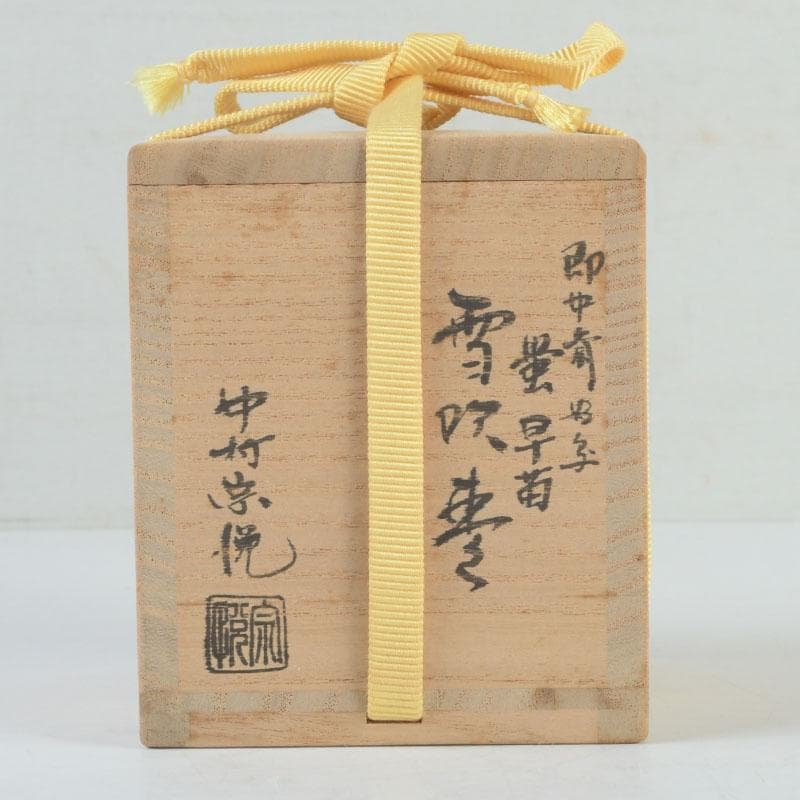 即中斎好写
蛍早苗
雪吹棗
中村宗悦
宗悦